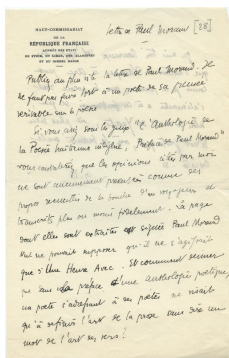 HAUT-COMMISSARIAT
DE LA
RÉPUBLIQUE FRANÇAISE
AUPRÈS DES ÉTATS
DE SYRIE, DU LIBAN, DES ALAOUITES
ET DU DJEBEL DRUZE
lettre à Paul Morand [28]
Publiez au plus tôt la lettre de Paul Morand. Il
ne faut pas faire tort à un poète de sa pensée
véritable sur la poésie
Si vous avez sous les yeux l'"Anthologie de
la Poésie haïtienne indigène", Préface de Paul Morand"
vous constaterez que les opinions citées par moi
ne sont aucunement données comme des
propos recueillis de la bouche d'un voyageur et
transcrits plus ou moins fidèlement. La page
dont elles sont extraites est signée Paul Morand
Rien ne pouvait supposer qu'il ne s'agissait
que d'une Heure Avec. Et comment penser
que dans la préface d'une anthologie poétique,
un poète s'adressant à des poètes ne visait
qu'à définir l'art de la prose sans dire un
mot de l'art des vers!